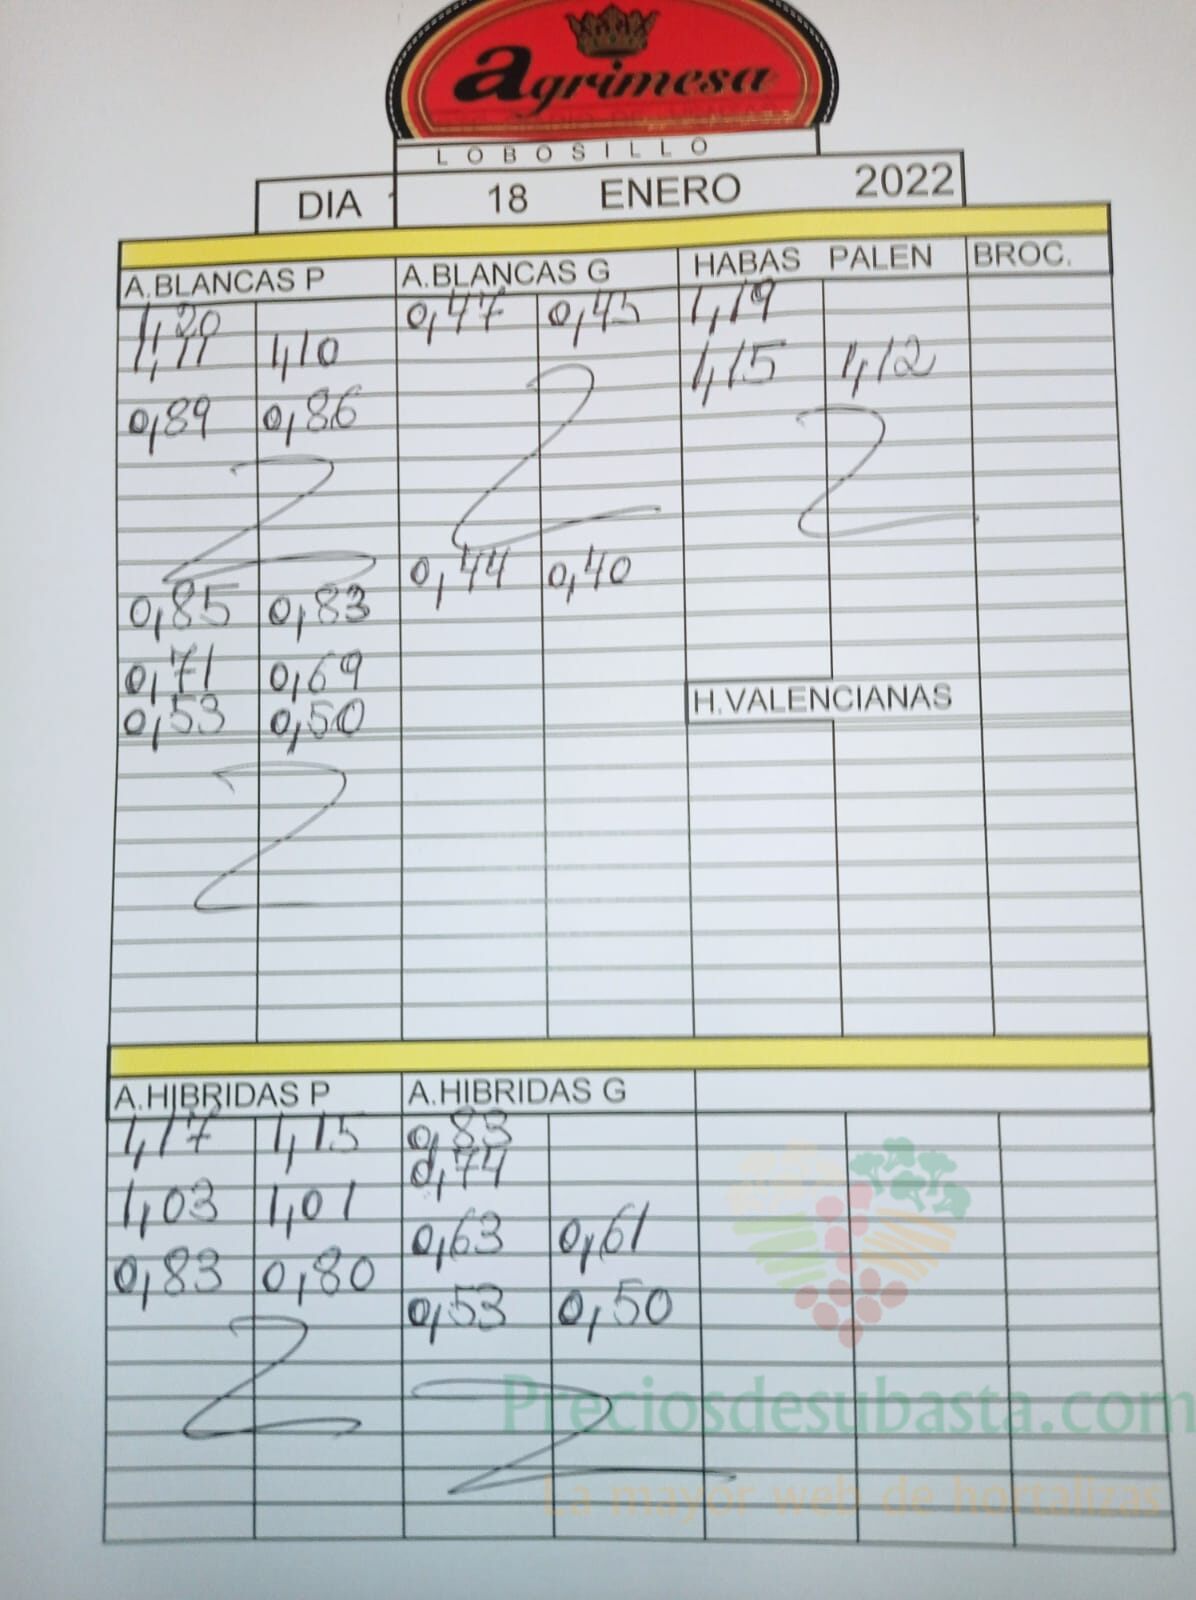 agrimesa
LOBOSILLO
DIA 18 ENERO 2022
A.BLANCAS P A.BLANCAS G HABAS PALEN BROC.
1,20 0,47 0,45 1,19
1,11 1,10 1,15 1,12
0,89 0,86
0,44 0,40
0,85 0,83
0,71 0,69
H.VALENCIANAS
0,53 0,50
A.HIBRIDAS P A.HIBRIDAS G
1,17 1,15 0,83
0,74
1,03 1,01
0,63 0,61
0,83 0,80
0,53 0,50
Preciosdesubasta.com
La mayor web de hortalizas